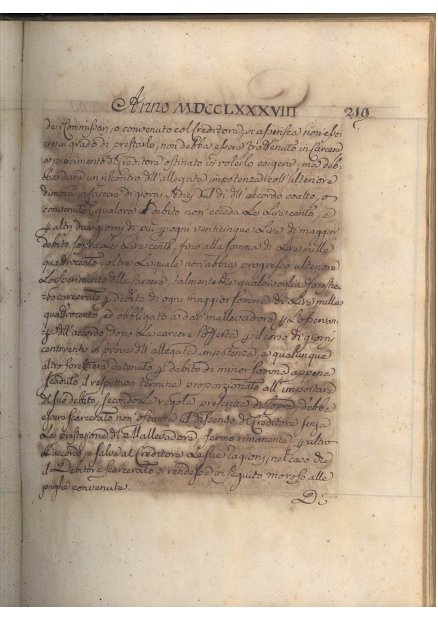 Anno MDCCLXXXVIII 210
de Commissari, o convenuto col Creditore, si assenserà non esse-
re in grado di prestarlo, non debba essere trattenuto in carcere
a piacimento di Creditore ostinato in volerlo esigere, ma deb-
ba dare un riscontro dell'allegata impotenza coll'ulteriore
dimora in carcere di giorni dieci dal dì dell'accordo coatto, o
convenuto, qualora il debito non ecceda le Lire cento, e
altri due giorni di più ogni venticinque Lire di maggior
debito sopra le Lire cento, fino alla somma di Lire mille
quattrocento, oltre le quale non abbia progresso ulteriore
l'esperimento della carcere, talmente che qualsivoglia forastie-
ro carcerato debito di ogni maggior somma di Lire mille
quattrocento, ed obbligato a dar mallevadore
dell'accordo dopo la carcere sofferta il corso di giorni
centoventi in prova dell'allegata impotenza, e qualunque
altro forestiere detenuto debito di minor somma appena
scaduto il respettivo termine proporzionato all'importare
di suo debito, secondo la regola prescritta di sopra debba
essere scarcerato non ostante il dissenso del Creditore senza
la prestazione di Mallevadore, fermo rimanente
l'accordo, e salve al Creditore le sue ragioni, nel caso che
il Debitore scarcerato si rendesse in seguito moroso alle
paghe convenute.
Di